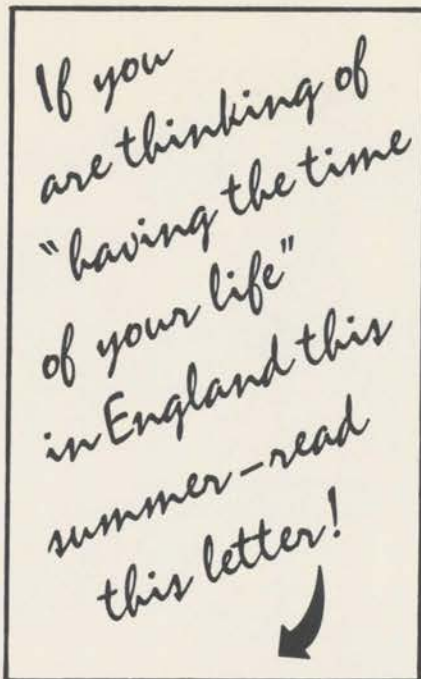 If you
are thinking of
“having the time
of your life”
in England this
summer – read
this letter!